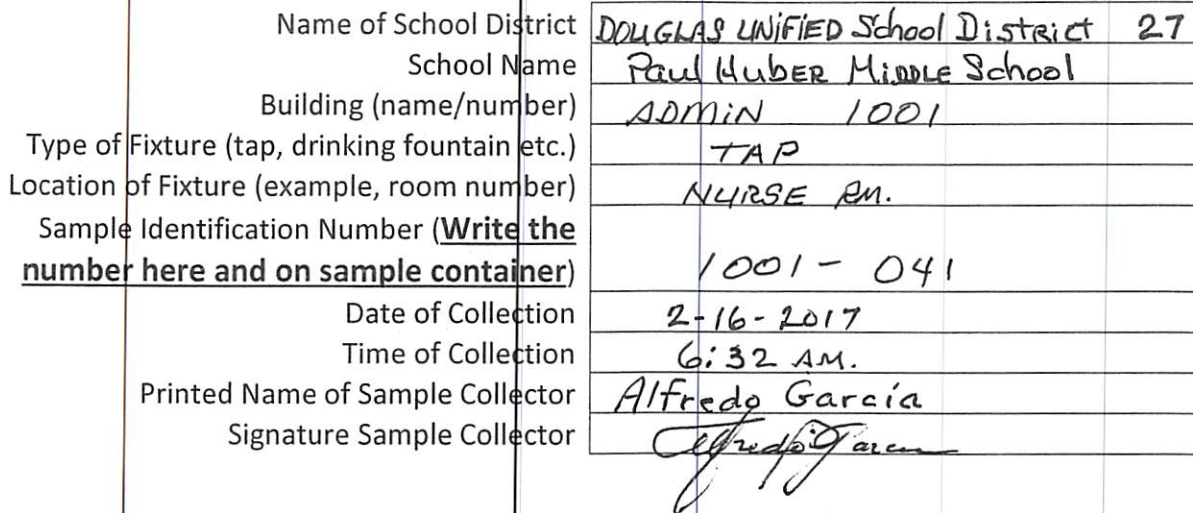 Name of School District DOUGLAS UNIFIED School District 27
School Name Paul Huber Middle School
Building (name/number) ADMIN 1001
Type of Fixture (tap, drinking fountain etc.) TAP
Location of Fixture (example, room number) NURSE RM.
Sample Identification Number (Write the
number here and on sample container) 1001-041
Date of Collection 2-16-2017
Time of Collection 6:32 AM.
Printed Name of Sample Collector Alfredo Garcia
Signature Sample Collector Alfredo Garcia